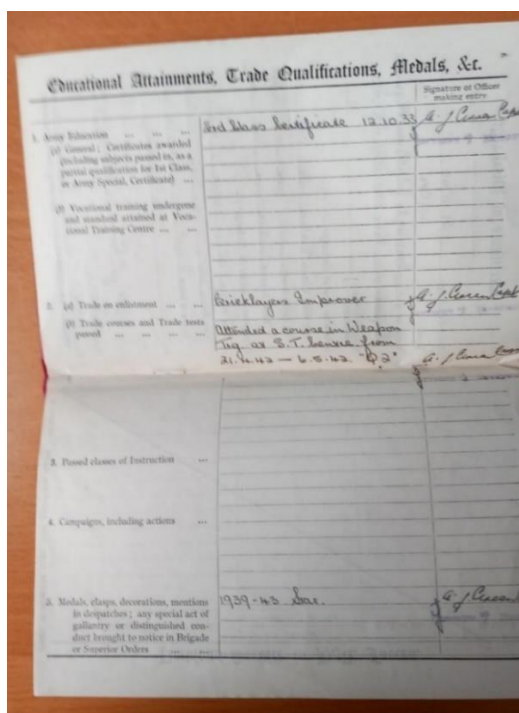 Educational Attainments, Trade Qualifications, Medals, &c.
Signature of Officer
making entry
1. Army Education ... ... ...
(a) General; Certificates awarded
(including subjects passed in, as a
partial qualification for 1st Class,
or Army Special, Certificate) ...
3rd Class Certificate 12.10.33
(b) Vocational training undergone
and standard attained at Voca-
tional Training Centre ... ...
2. (a) Trade on enlistment ... ...
Bricklayers Improver
(b) Trade courses and Trade tests
passed ... ... ... ...
Attended a course in Weapon
Trg at S.T. Centre from
21.4.42 — 6.5.42. "Q2"
3. Passed classes of Instruction ...
4. Campaigns, including actions ...
5. Medals, clasps, decorations, mentions
in despatches; any special act of
gallantry or distinguished con-
duct brought to notice in Brigade
or Superior Orders ... ...
1939-43 Star.